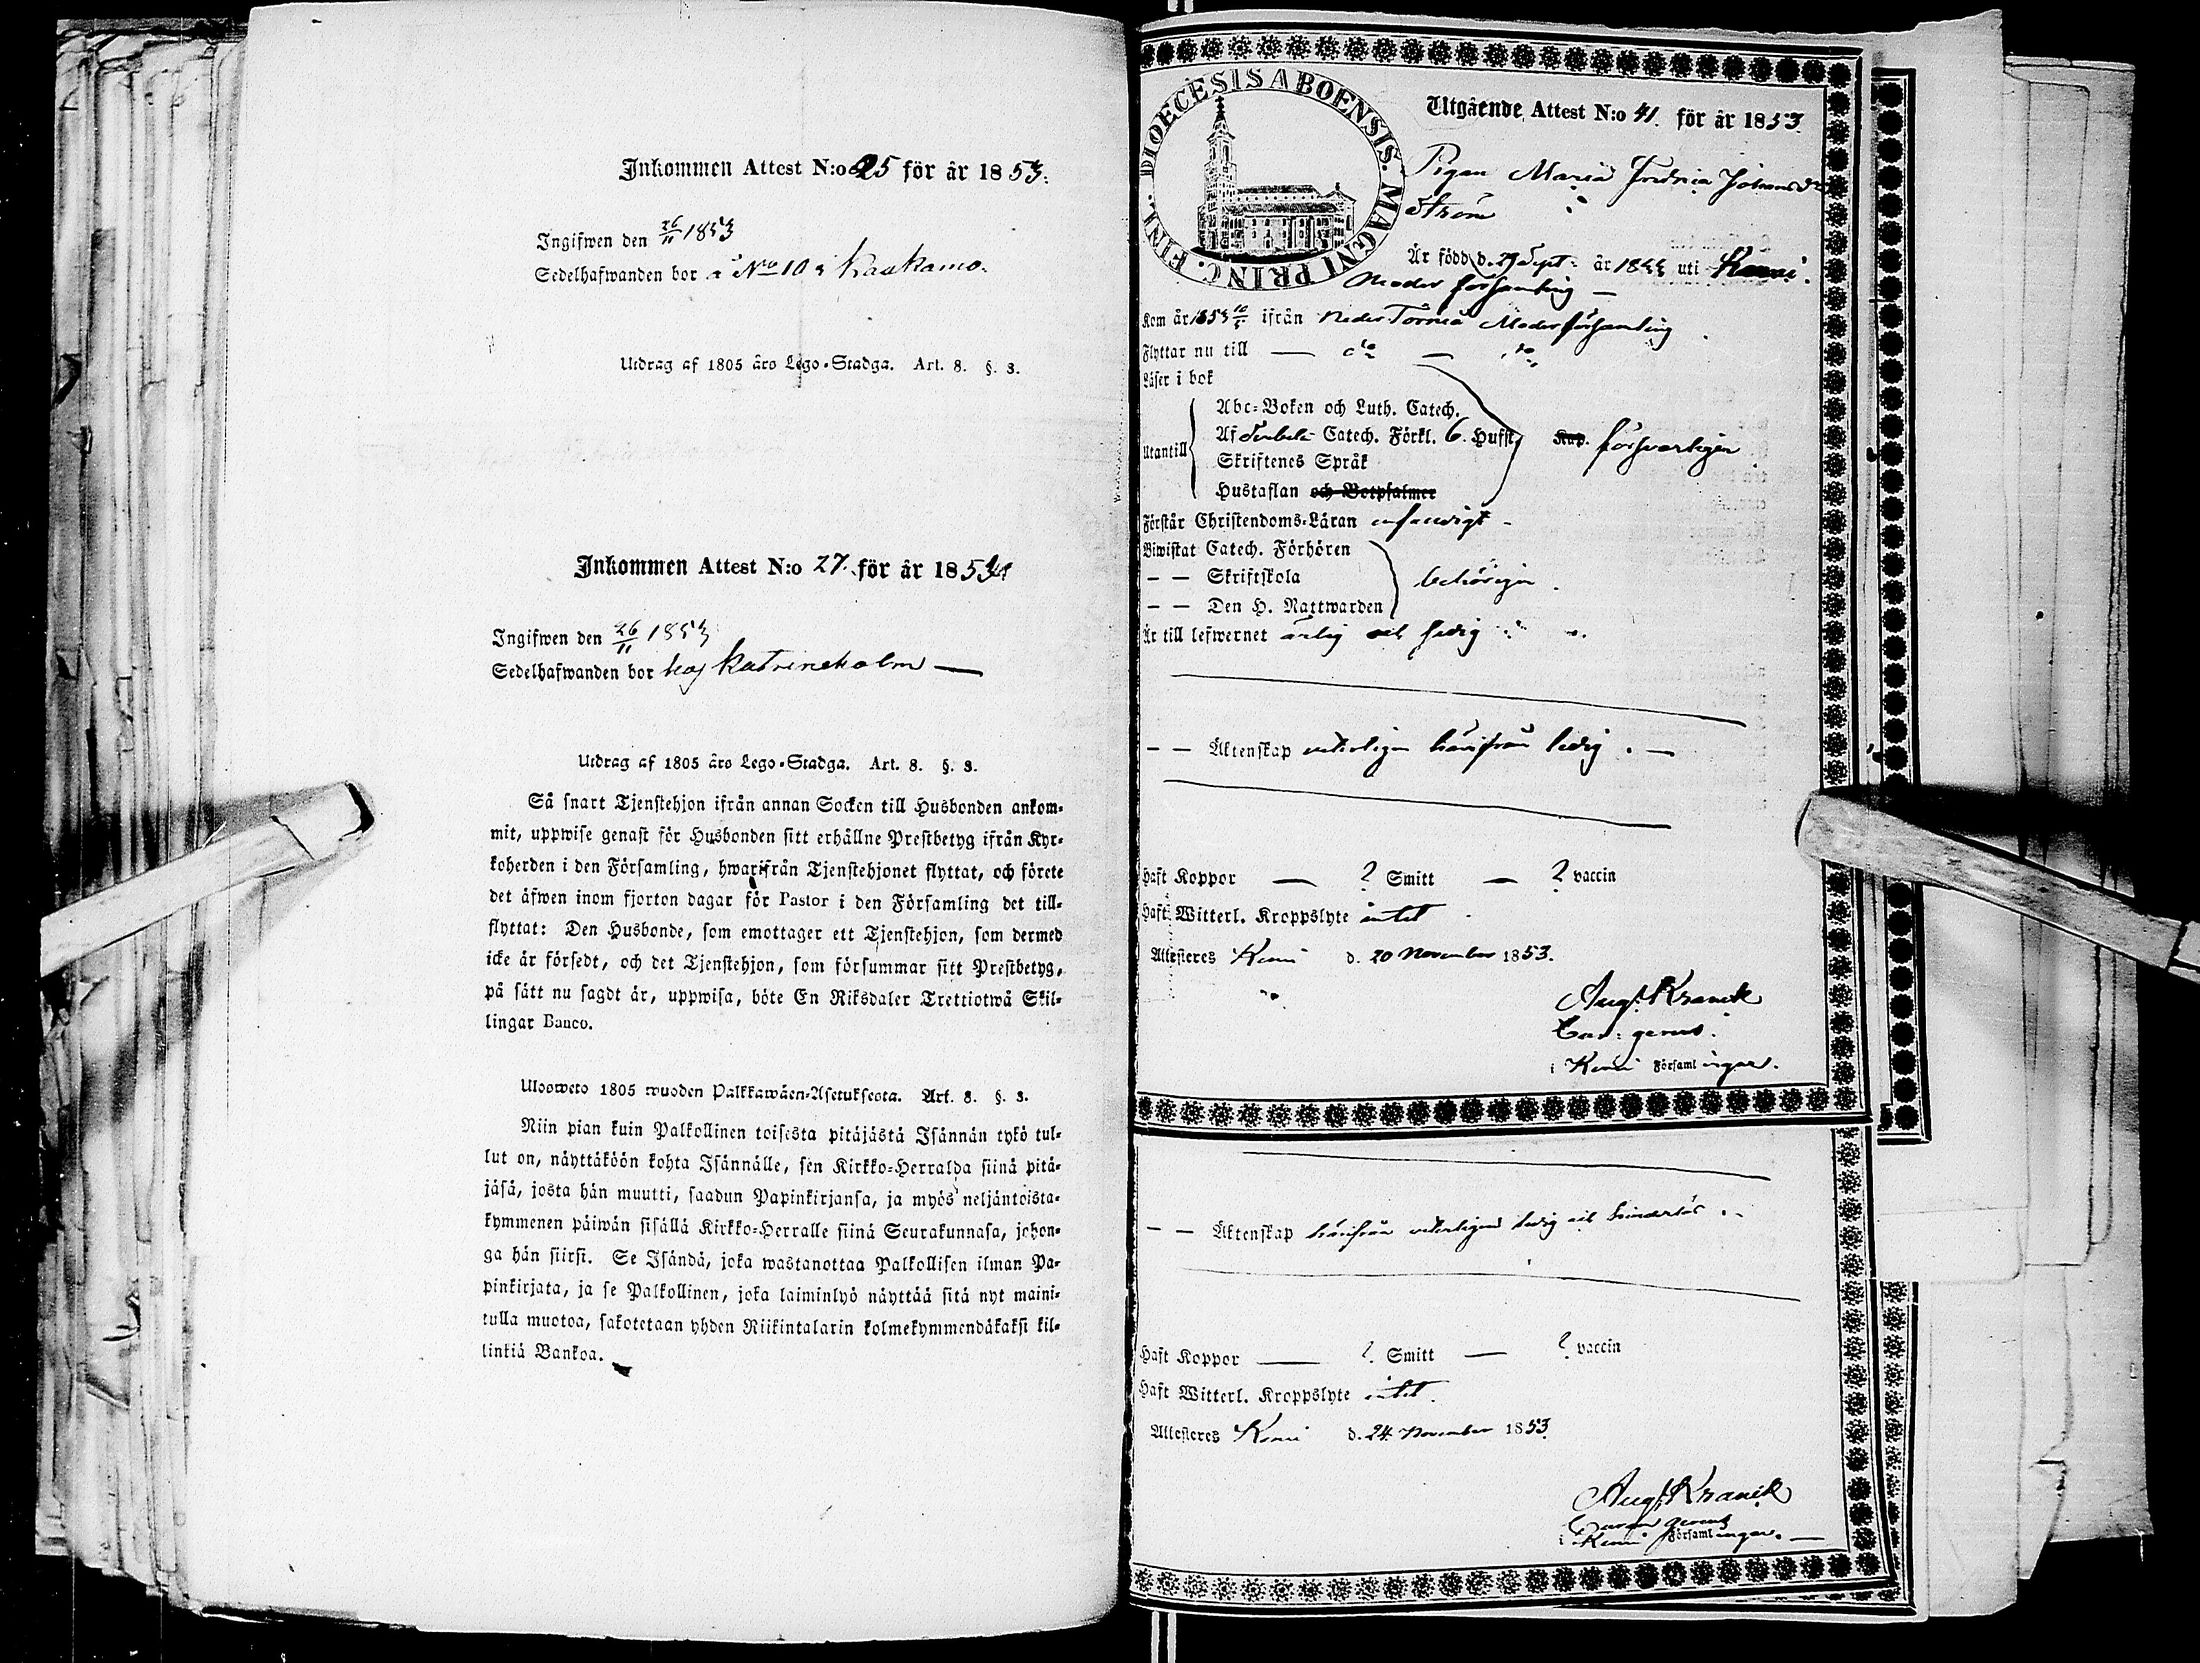 Inkommen Attest N:o 25 för år 1853.
Ingifwen den 26/11 1853
Sedelhafwanden bor i No 10 i Kaakamo.
Utdrag af 1805 års Lego-Stadga. Art. 8. §. 3.
Inkommen Attest N:o 27. för år 1853
Ingifwen den 26/11 1853
Sedelhafwanden bor hos Katrineholm —
Utdrag af 1805 års Lego-Stadga. Art. 8. §. 3.
Så snart Tjenstehjon ifrån annan Socken till Husbonden ankom-
mit, uppwise genast för Husbonden sitt erhållne Prestbetyg ifrån Kyr-
koherden i den Församling, hwarifrån Tjenstehjonet flyttat, och förete
det äfwen inom fjorton dagar för Pastor i den Församling det till-
flyttat: Den Husbonde, som emottager ett Tjenstehjon, som dermed
icke är försedt, och det Tjenstehjon, som försummar sitt Prestbetyg,
på sätt nu sagdt är, uppwisa, böte En Riksdaler Trettiotwå Skil-
lingar Banco.
Ulosweto 1805 wuoden Palkkawäen-Asetuksesta. Art. 8. §. 3.
Niin pian kuin Palkollinen toisesta pitäjästä Isännän tykö tul-
lut on, näyttäköön kohta Isännälle, sen Kirkko-Herralda siinä pitä-
jäsä, josta hän muutti, saadun Papinkirjansa, ja myös neljäntoista-
kymmenen päiwän sisällä Kirkko-Herralle siinä Seurakunnasa, johon-
ga hän siirsi. Se Isändä, joka wastanottaa Palkollisen ilman Pa-
pinkirjata, ja se Palkollinen, joka laiminlyö näyttää sitä nyt maini-
tulla muotoa, sakotetaan yhden Riikintalarin kolmekymmendäkaksi kil-
linkiä Bankoa.
DIOECESIS ABOENSIS. MAGNI PRINC. FINL.
Utgående Attest N:o 41. för år 1853.
Pigan Maria Johansdr
Ström
Är född d. 29 Sept. år uti Kemi.
Moder församling —
Kom år 1853 ifrån Neder Torneå Moderförsamling
Flyttar nu till — do — do
Läser i bok
Utantill
Abc-Boken och Luth. Catech.
Af Catech. Förkl. 6. Hufst. Kap. försvarligen
Skriftenes Språk
Hustaflan och Botpsalmer
Förstår Christendoms-Läran
Biwistat Catech. Förhören
— — Skriftskola behörigen.
— — Den H. Nattwarden
Är till lefwernet ärlig och sedig
— — Äktenskap veterligen härifrån ledig. —
Haft Koppor — ? Smitt — ? vaccin
Haft Witterl. Kroppslyte intet
Attesteres Kemi d. 20 November 1853.
Aug. Kranck
i Kemi Församlingar.
— — Äktenskap härifrån veterligen ledig och hinderlös.
Haft Koppor — ? Smitt — ? vaccin
Haft Witterl. Kroppslyte intet.
Attesteres Kemi d. 24 November 1853.
Aug. Kranck
i Kemi Församlingar. —